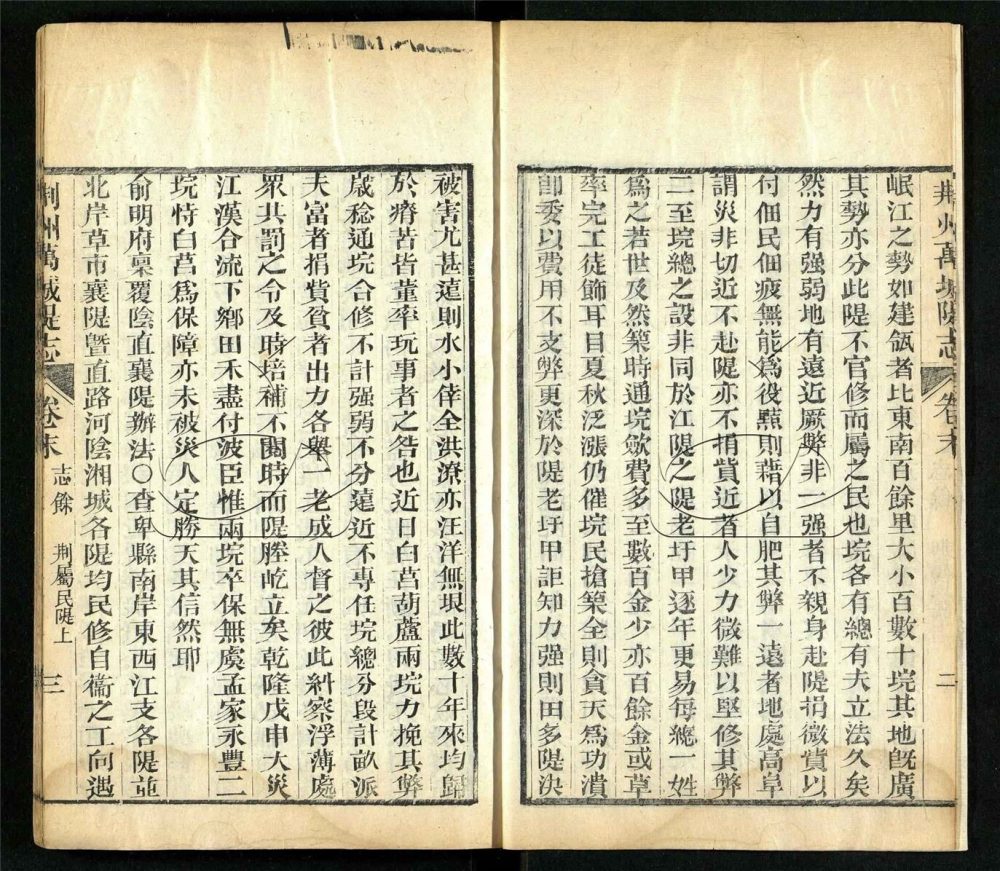 荆州萬城隄志 卷末 二
岷江之勢如建瓴者比東南百餘里大小百數十垸其地旣廣
其勢亦分此隄不官修而屬之民也垸各有總有夫立法久矣
然力有强弱地有遠近厥弊非一强者不親身赴隄捐微貲以
付佃民佃疲無能爲役黠則藉以自肥其弊一遠者地處高阜
謂災非切近不赴隄亦不捐貲近者人少力微難以堅修其弊
二至垸總之設非同於江隄之隄老圩甲逐年更易每總一姓
爲之若世及然築時通垸歛費多至數百金少亦百餘金或草
率完工徒飾耳目夏秋泛漲仍催垸民搶築全則貪天爲功潰
卽委以費用不支弊更深於隄老圩甲詎知力强則田多隄決
被害尤甚遠則水小倖全洪潦亦汪洋無垠此數十年來均歸
於瘠苦皆董率玩事者之咎也近日白莒葫蘆兩垸力挽其弊
歲稔通垸合修不計强弱不分遠近不專任垸總分段計畝派
夫富者捐貲貧者出力各舉一老成人督之彼此糾察浮薄處
眾共罰之令及時培補不閱時而隄塍屹立矣乾隆戊申大災
江漢合流下鄉田禾盡付波臣惟兩垸卒保無虞孟家永豐二
垸恃白莒爲保障亦未被災人定勝天其信然耶
俞明府稟覆陰直襄隄辦法〇查卑縣南岸東西江支各隄並
北岸草市襄隄暨直路河陰湘城各隄均民修自衞之工向遇
荆州萬城隄志 卷末 志餘 荆屬民隄上 三